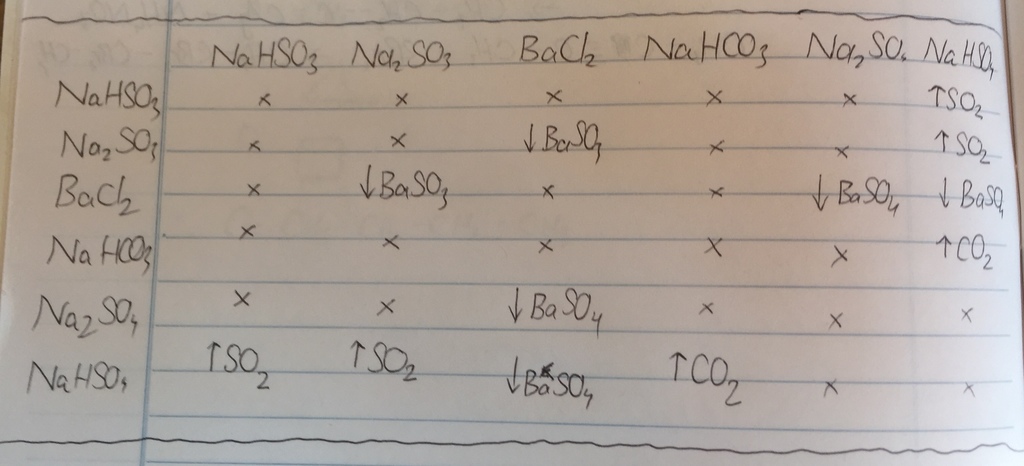 NaHSO3 Na2SO3 BaCl2 NaHCO3 Na2SO4 NaHSO4
NaHSO3 x x x x x ↑SO2
Na2SO3 x x ↓BaSO3 x x ↑SO2
BaCl2 x ↓BaSO3 x x ↓BaSO4 ↓BaSO4
NaHCO3 x x x x x ↑CO2
Na2SO4 x x ↓BaSO4 x x x
NaHSO4 ↑SO2 ↑SO2 ↓BaSO4 ↑CO2 x x